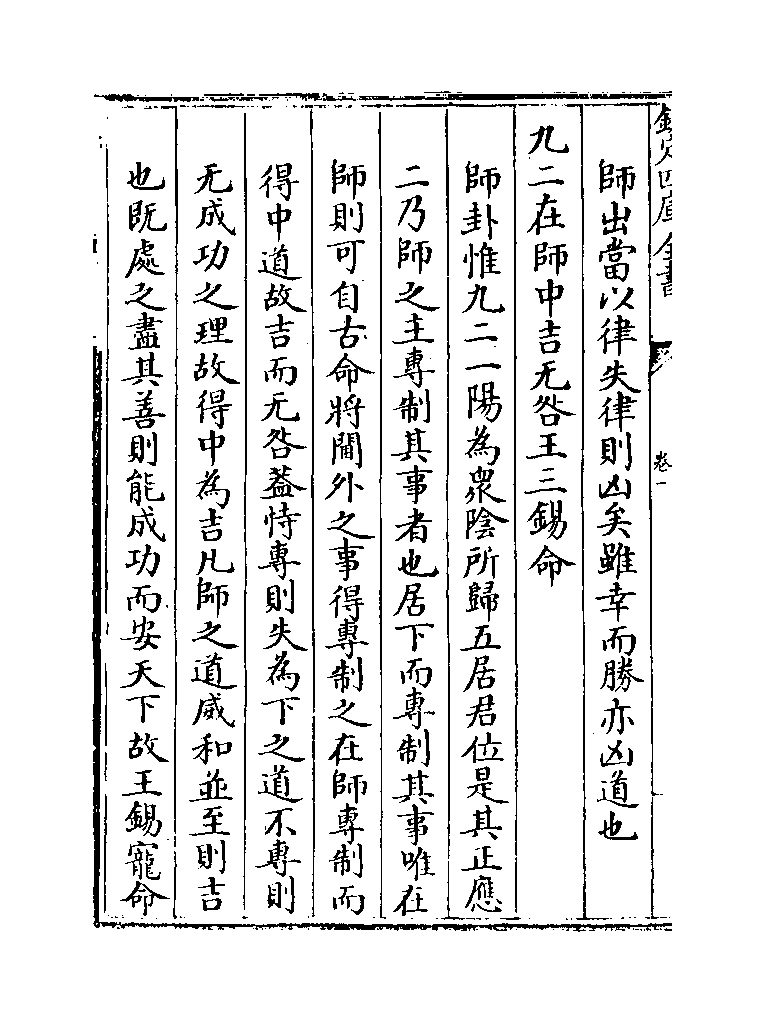 欽定四庫全書
卷一
師出當以律失律則凶矣雖幸而勝亦凶道也
九二在師中吉无咎王三錫命
師卦惟九二一陽為衆陰所歸五居君位是其正應
二乃師之主專制其事者也居下而專制其事唯在
師則可自古命將閫外之事得專制之在師專制而
得中道故吉而无咎葢恃專則失為下之道不專則
无成功之理故得中為吉凡師之道威和並至則吉
也既處之盡其善則能成功而安天下故王錫寵命